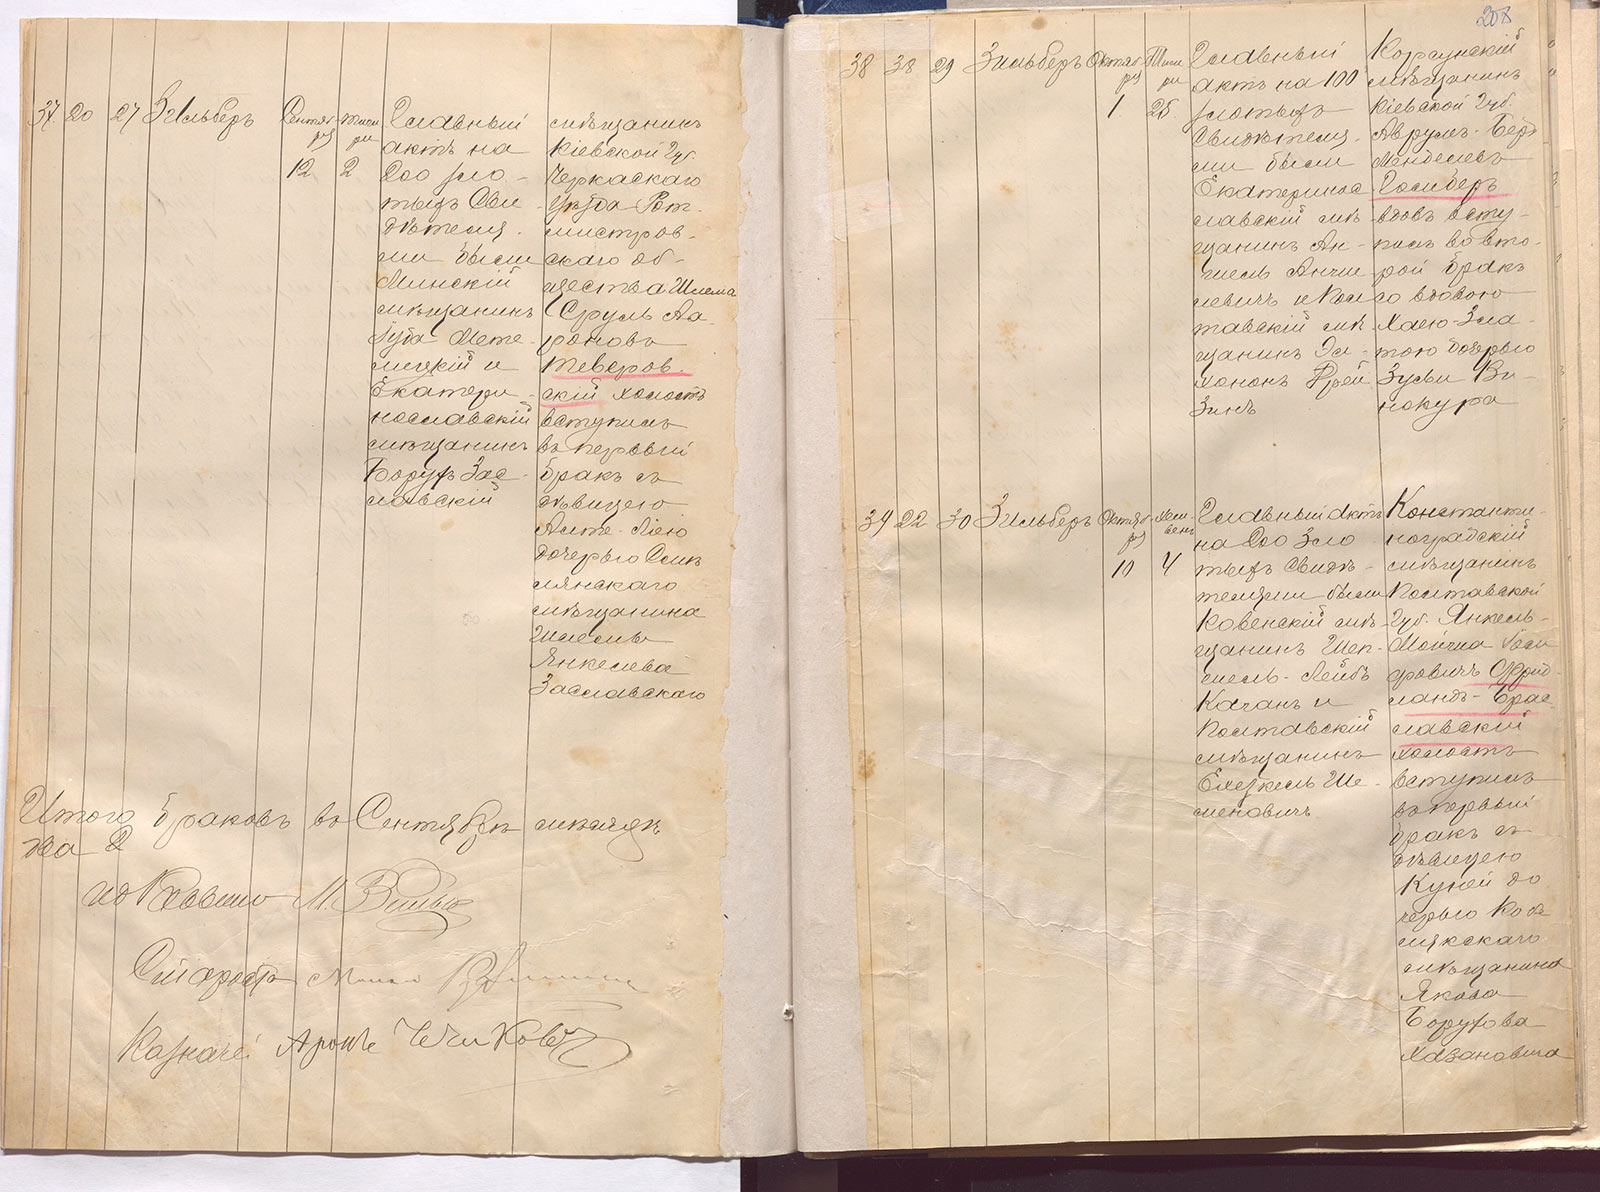 37 20 27 Зильберъ
Сентяб
ря
12
тиш
ри
2
Главный
актъ на
200 зло-
тыхъ Сви
дѣтеля-
ми были
Минскій
мѣщанинъ
и
Екатери-
нославскій
мѣщанинъ
Борухъ Зас-
лавскій
мѣщанинъ
Кіевской Губ.
Черкаскаго
уѣзда Рот-
мистров-
скаго об-
щества Шлема
Сруль Аа-
роновъ
Теверов-
скій холостъ
вступилъ
въ первый
бракъ съ
дѣвицею
дочерью Смѣ
лянскаго
мѣщанина
Янкелева
Заславскаго
Итого браковъ въ Сентябрѣ мѣсяцѣ
два 2
Староста
Казначей
208
38 38 29 Зильберъ
Октяб
ря
1
Тиш
ри
25
Главный
актъ на 100
злотыхъ
Свидѣтеля-
ми были
Екатеринос
лавскій мѣ-
щанинъ Ан-
шель Анше
левичъ и Пол
тавскій мѣ-
щанинъ Эл-
хононъ Фрей
Зинъ
Корсунскій
мѣщанинъ
Кіевской Губ.
Аврумъ-Беръ
Менделевъ
Голиберъ
вдовъ всту-
пилъ во вто-
рой бракъ
со вдовою
Хаею-Зла-
тою дочерью
Зусьи Ви-
нокура
39 22 30 Зильберъ
Октяб
ря
10
Хеш-
венъ
4
Главный Актъ
на 200 Зло
тыхъ Свидѣ-
телями были
Ковенскій мѣ-
щанинъ Шеп-
шель-Лейбъ
Каганъ и
Полтавскій
мѣщанинъ
Ехезкель Ше-
меновичъ
Константи-
ноградскій
мѣщанинъ
Полтавской
Губ. Янкель-
Мойша
Фрид-
ландъ-Брас-
лавскій
холостъ
вступилъ
въ первый
бракъ съ
дѣвицею
Куней до
черью Кобе
лякскаго
мѣщанина
Якова
Борухова
Хазановича